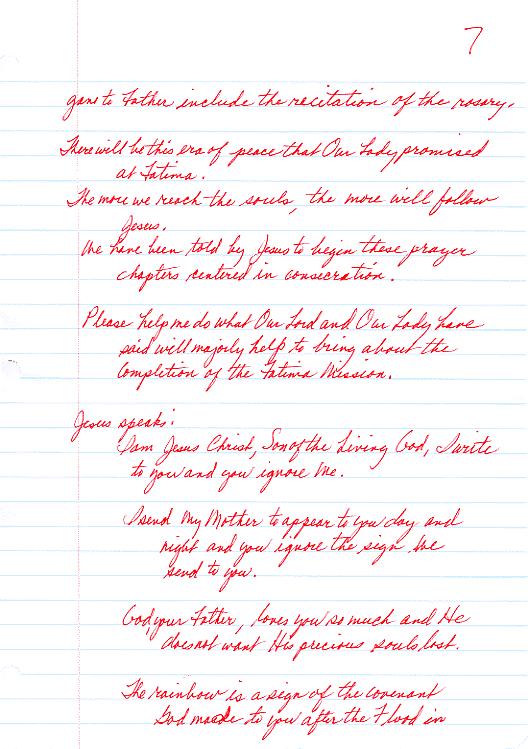 7
gave to Father include the recitation of the rosary.
There will be this era of peace that Our Lady promised
at Fatima.
The more we reach the souls, the more will follow
Jesus.
We have been told by Jesus to begin these prayer
chapters centered in consecration.
Please help me do what Our Lord and Our Lady have
said will majorly help to bring about the
completion of the Fatima Mission.
Jesus speaks:
I am Jesus Christ, Son of the Living God, I write
to you and you ignore Me.
I send My Mother to appear to you day and
night and you ignore the sign We
send to you.
God, your Father, loves you so much and He
does not want His precious souls lost.
The rainbow is a sign of the covenant
God made to you after the Flood in